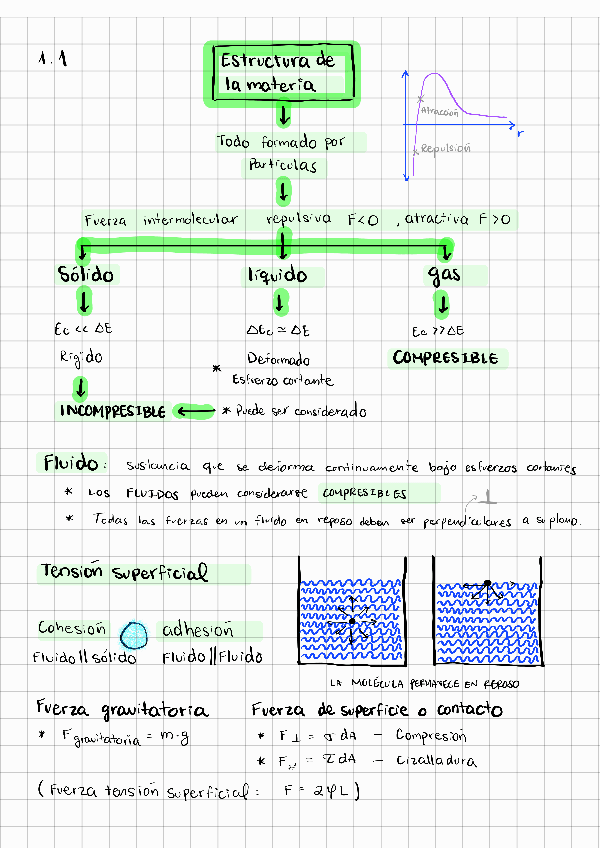 1.1
Estructura de
la materia
Todo formado por
Partículas
Atracción
Repulsión
r
Fuerza intermolecular repulsiva F<0 , atractiva F>0
Sólido líquido gas
Ec << ΔE ΔEc ≃ ΔE Ec >> ΔE
Rígido Deformado COMPRESIBLE
* Esfuerzo cortante
INCOMPRESIBLE * Puede ser considerado
Fluido: sustancia que se deforma continuamente bajo esfuerzos cortantes
* LOS FLUIDOS pueden considerarse COMPRESIBLES
⊥
* Todas las fuerzas en un fluido en reposo deben ser perpendiculares a su plano.
Tensión superficial
Cohesión adhesión
Fluido || sólido Fluido || Fluido
LA MOLÉCULA PERMANECE EN REPOSO
Fuerza gravitatoria Fuerza de superficie o contacto
* F gravitatoria = m·g * F⊥ = σ dA - Compresión
* F〃 = τ dA - Cizalladura
(Fuerza tensión superficial: F = 2φL)